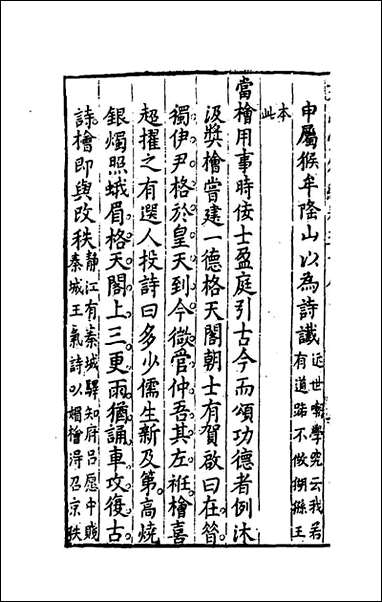 申屬猴牟隆山以為詩讖
近世嘲學究云我若
有道路不做猢猻王
本此
當檜用事時佞士盈庭引古今而頌功德者例沐
汲獎檜嘗建一德格天閣朝士有賀啟曰在昔
獨伊尹格於皇天到今微管仲吾其左衽檜喜
超擢之有選人投詩曰多少儒生新及第高燒
銀燭照蛾眉格天閣上三更雨猶誦車攻復古
詩檜即與改秩
靜江有秦城驛知府呂愿中賤
秦城王氣詩以媚檜得召京秩